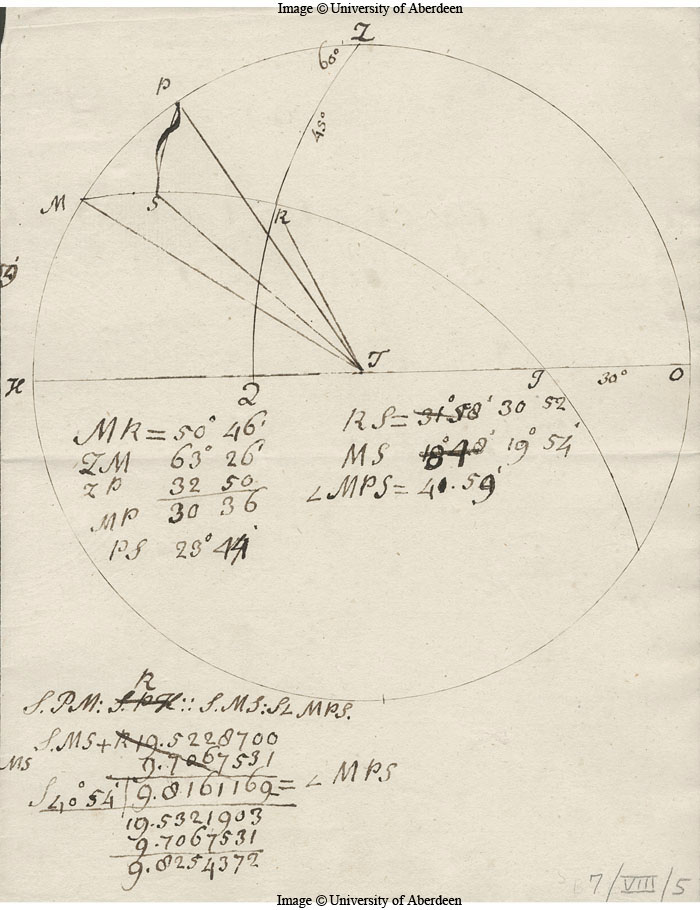 Image © University of Aberdeen
Z
60°
P
45°
M
S
R
T
H
Q
J
30°
O
MR = 50° 46'
ZM 63° 26'
ZP 32 50
MP 30 36
PS 23° 44'
RS = 31° 58' 30 52
MS 18° 48' 19° 54'
∠MPS = 41. 59'
R
S.PM: S.PH :: S.MS: S∠MPS.
S.MS + R 19.5228700
9.7067531
MS
S 40° 54' 9.8161169 = ∠ MPS
19.5321903
9.7067531
9.8254372
7/VIII/5
Image © University of Aberdeen